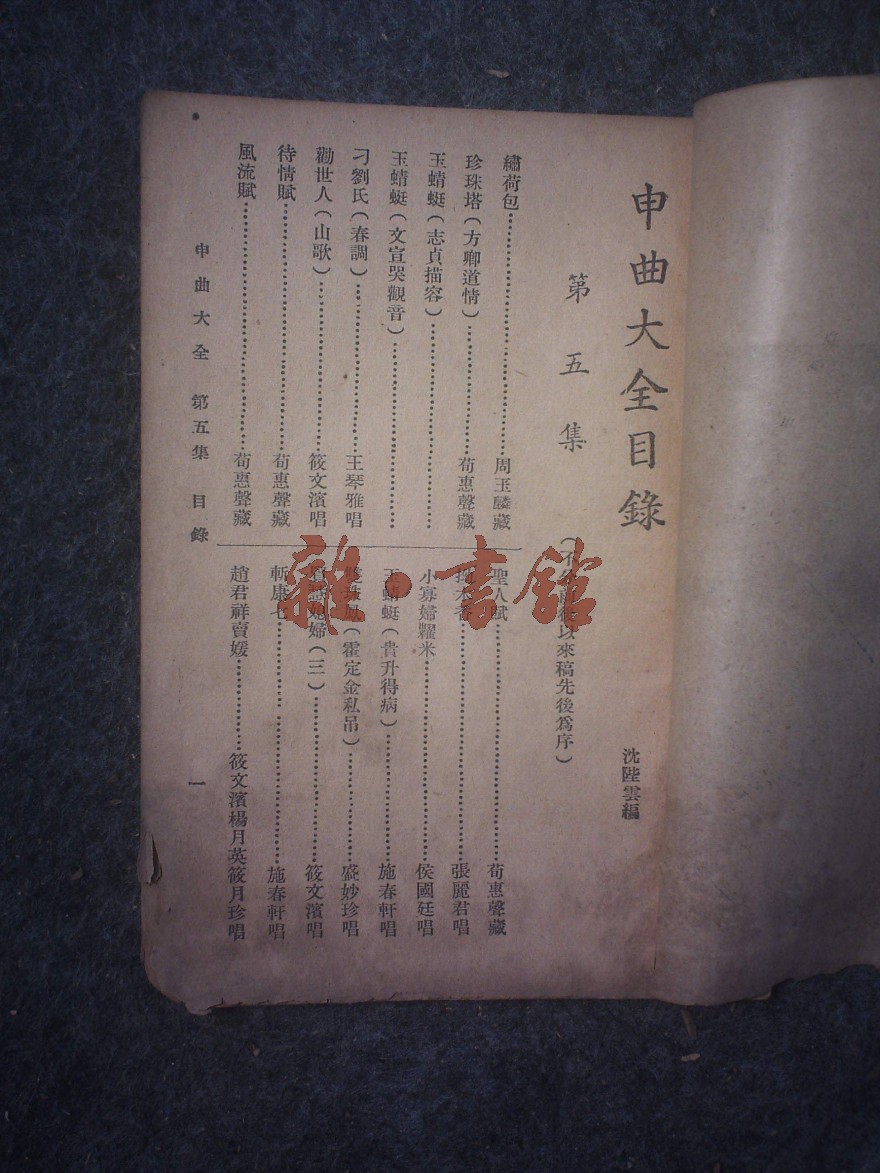 申曲大全目錄
第五集
(不分前後以來稿先後爲序)
沈陛雲編
繡荷包……周玉麟藏
珍珠塔(方卿道情)……荀惠聲藏
玉蜻蜓(志貞描容)……
玉蜻蜓(文宣哭觀音)……
刁劉氏(春調)……王琴雅唱
勸世人(山歌)……筱文濱唱
待情賦……荀惠聲藏
風流賦……荀惠聲藏
聖人賦……荀惠聲藏
木香……張麗君唱
小寡婦糶米……侯國廷唱
玉蜻蜓(貴升得病)……施春軒唱
珠鳳(霍定金私吊)……盛妙珍唱
婦(三)……筱文濱唱
斬康七……施春軒唱
趙君祥賣媛……筱文濱楊月英筱月珍唱
申曲大全 第五集 目錄
一
雜·書館